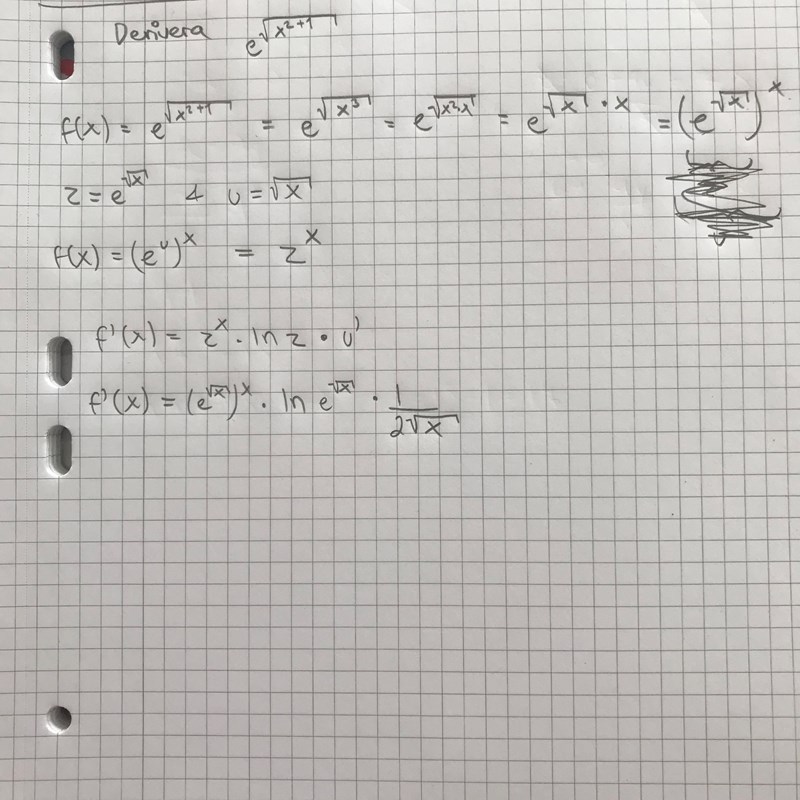 Derivera e^√(x²+1)
f(x) = e^√(x²+1) = e^√(x³) = e^√(x²·x) = e^√x · x = (e^√x)^x
z = e^√x & u = √x
f(x) = (e^u)^x = z^x
f'(x) = z^x · ln z · u'
f'(x) = (e^√x)^x · ln e^√x · 1/(2√x)